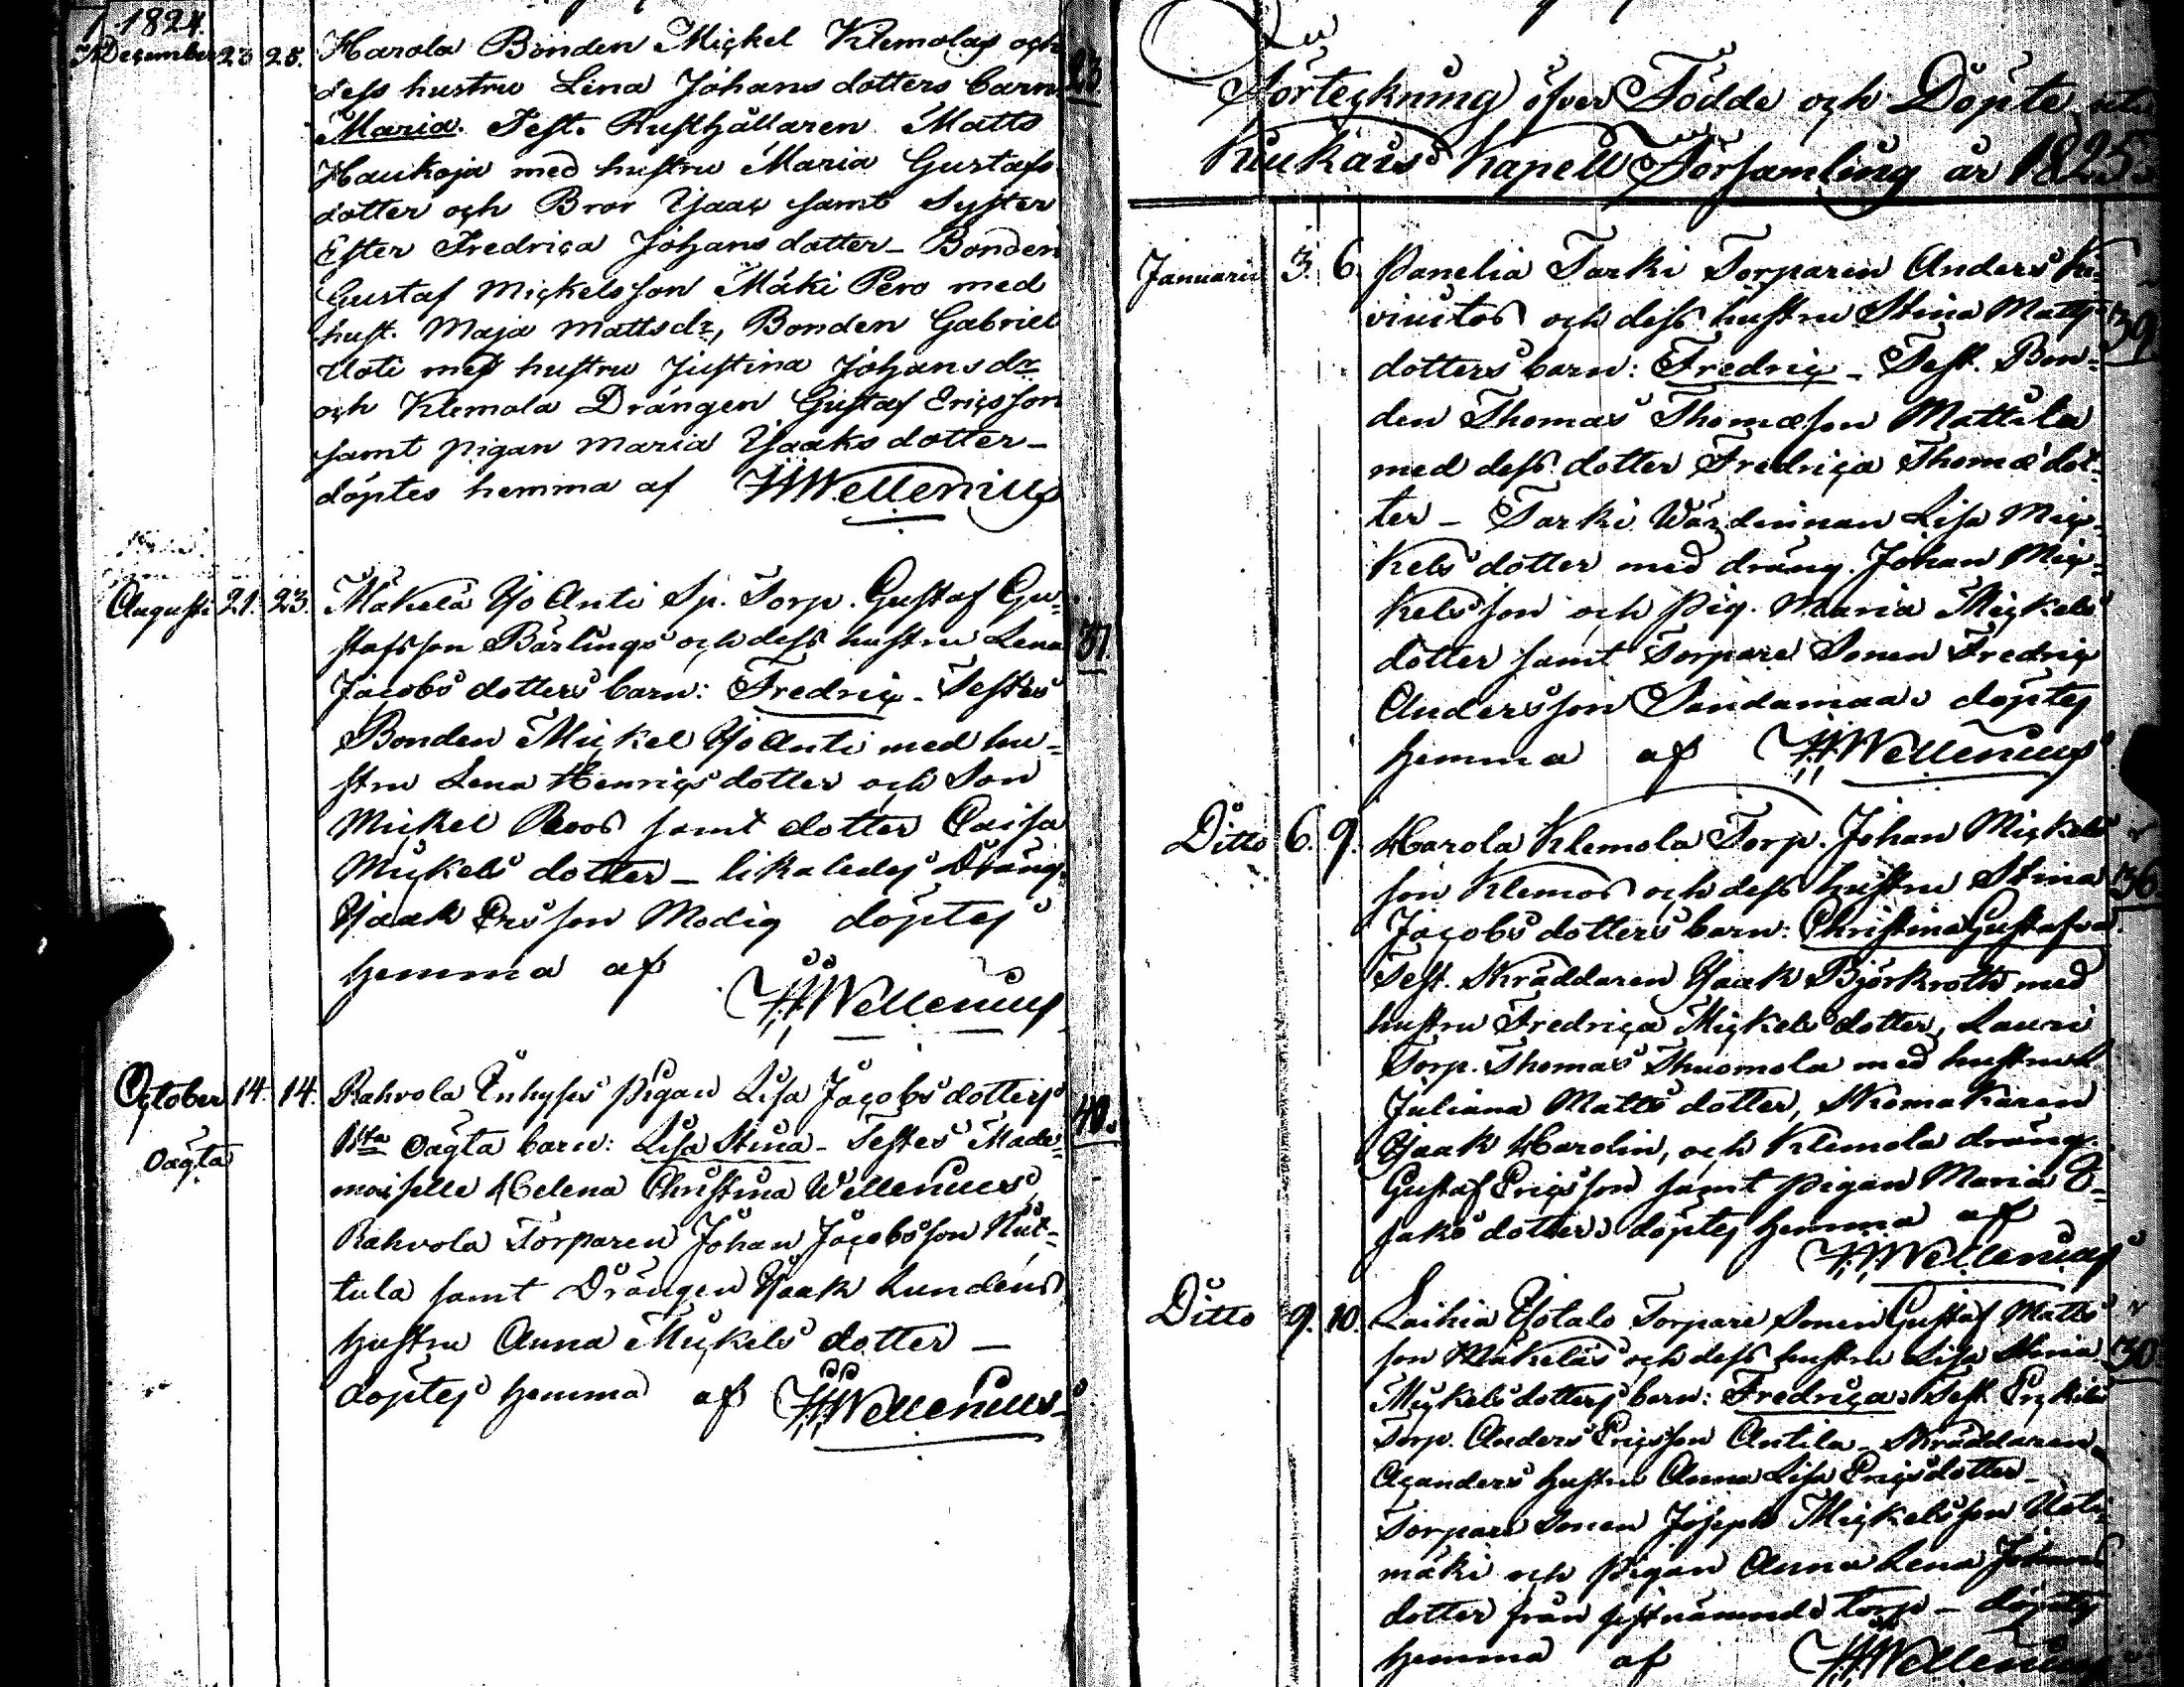 1824.
December 23 28. Harola Bonden Mickel Klemolas och 23
dess hustru Lina Johans dotters barn
Maria. Test. Rusthållaren Matts
Haukoja med hustru Maria Gustafs
dotter och Bror Isaac samt Syster
Ester Fredrica Johans dotter – Bonden
Gustaf Mickelsson Mäki Pero med
hust. Maja Mattsdr, Bonden Gabriel
Uoti med hustru Justina Johansdr
och Klemola Drängen Gustaf Ericsson
samt pigan Maria Isaaks dotter –
döptes hemma af HWellenius
Augusti 21. 23. Mäkelä Iso Anti Sp. Torp. Gustaf Gu= 37
stafsson Bärlings och dess hustru Lena
Jacobs dotters barn: Fredric – Testes
Bonden Mickel Iso Anti med hu=
stru Lena Henrics dotter och Son
Mickel Roos samt dotter Caisa
Mickels dotter – likaledes Dräng.
Isaak Ersson Modig döptes
hemma af
HWellenius
October 14. 14. Rahvola Inhyses pigan Lisa Jacobs dotters 40.
Oägta
1sta oägta barn: Lisa Stina – Testes Made=
moiselle Helena Christina Wellenius,
Rahvola Torparen Johan Jacobsson Nut=
tula samt Drängen Isaak Lundens
hustru Anna Mickels dotter –
döptes hemma af HWellenius
Förteckning öfver Födde och Döpte uti
Kiukais Kapell Församling år 1825
Januarii 3. 6. Panelia Tarki Torparen Anders
och dess hustru Stina Matts 39
dotters barn: Fredric – Test. Bon=
den Thomas Thomæson Mattila
med dess dotter Fredrica Thomæ dot=
ter – Tarki Wärdinnan Lisa Mic=
kels dotter med dräng. Johan Mic=
kelsson och Pig. Maria Mickels
dotter samt Torpare Sonen Fredric
Andersson Sandamaa döptes
hemma af HWellenius
Ditto 6. 9. Harola Klemola Torp. Johan Mickels
son Klemos och dess hustru Stina 36
Jacobs dotters barn: Christina Gustafva.
Test. Skräddaren Isaak Björkroth med
hustru Fredrica Mickels dotter, Lauri
Torp. Thomas Thuomola med hustru
Juliana Matts dotter, Skomakaren
Isaak Harolin, och Klemola dräng.
Gustaf Ericsson samt pigan Maria I=
saks dotter döptes hemma af
HWellenius
Ditto 9. 10. Laihia Ylotalo Torpare Sonen Gustaf Matts
son Mäkeläs och dess hustru Lisa Stina 30
Mickels dotters barn: Fredrica. Test.
Torp. Anders Ericsson Antila – Skräddaren
Acanders hustru Anna Lisa Ericsdotter –
Torpare Sonen Joseph Mickelsson Uoti=
mäki och Pigan Anna Lena Johans
dotter från sistnämnde torp – döptes
hemma af HWellenius